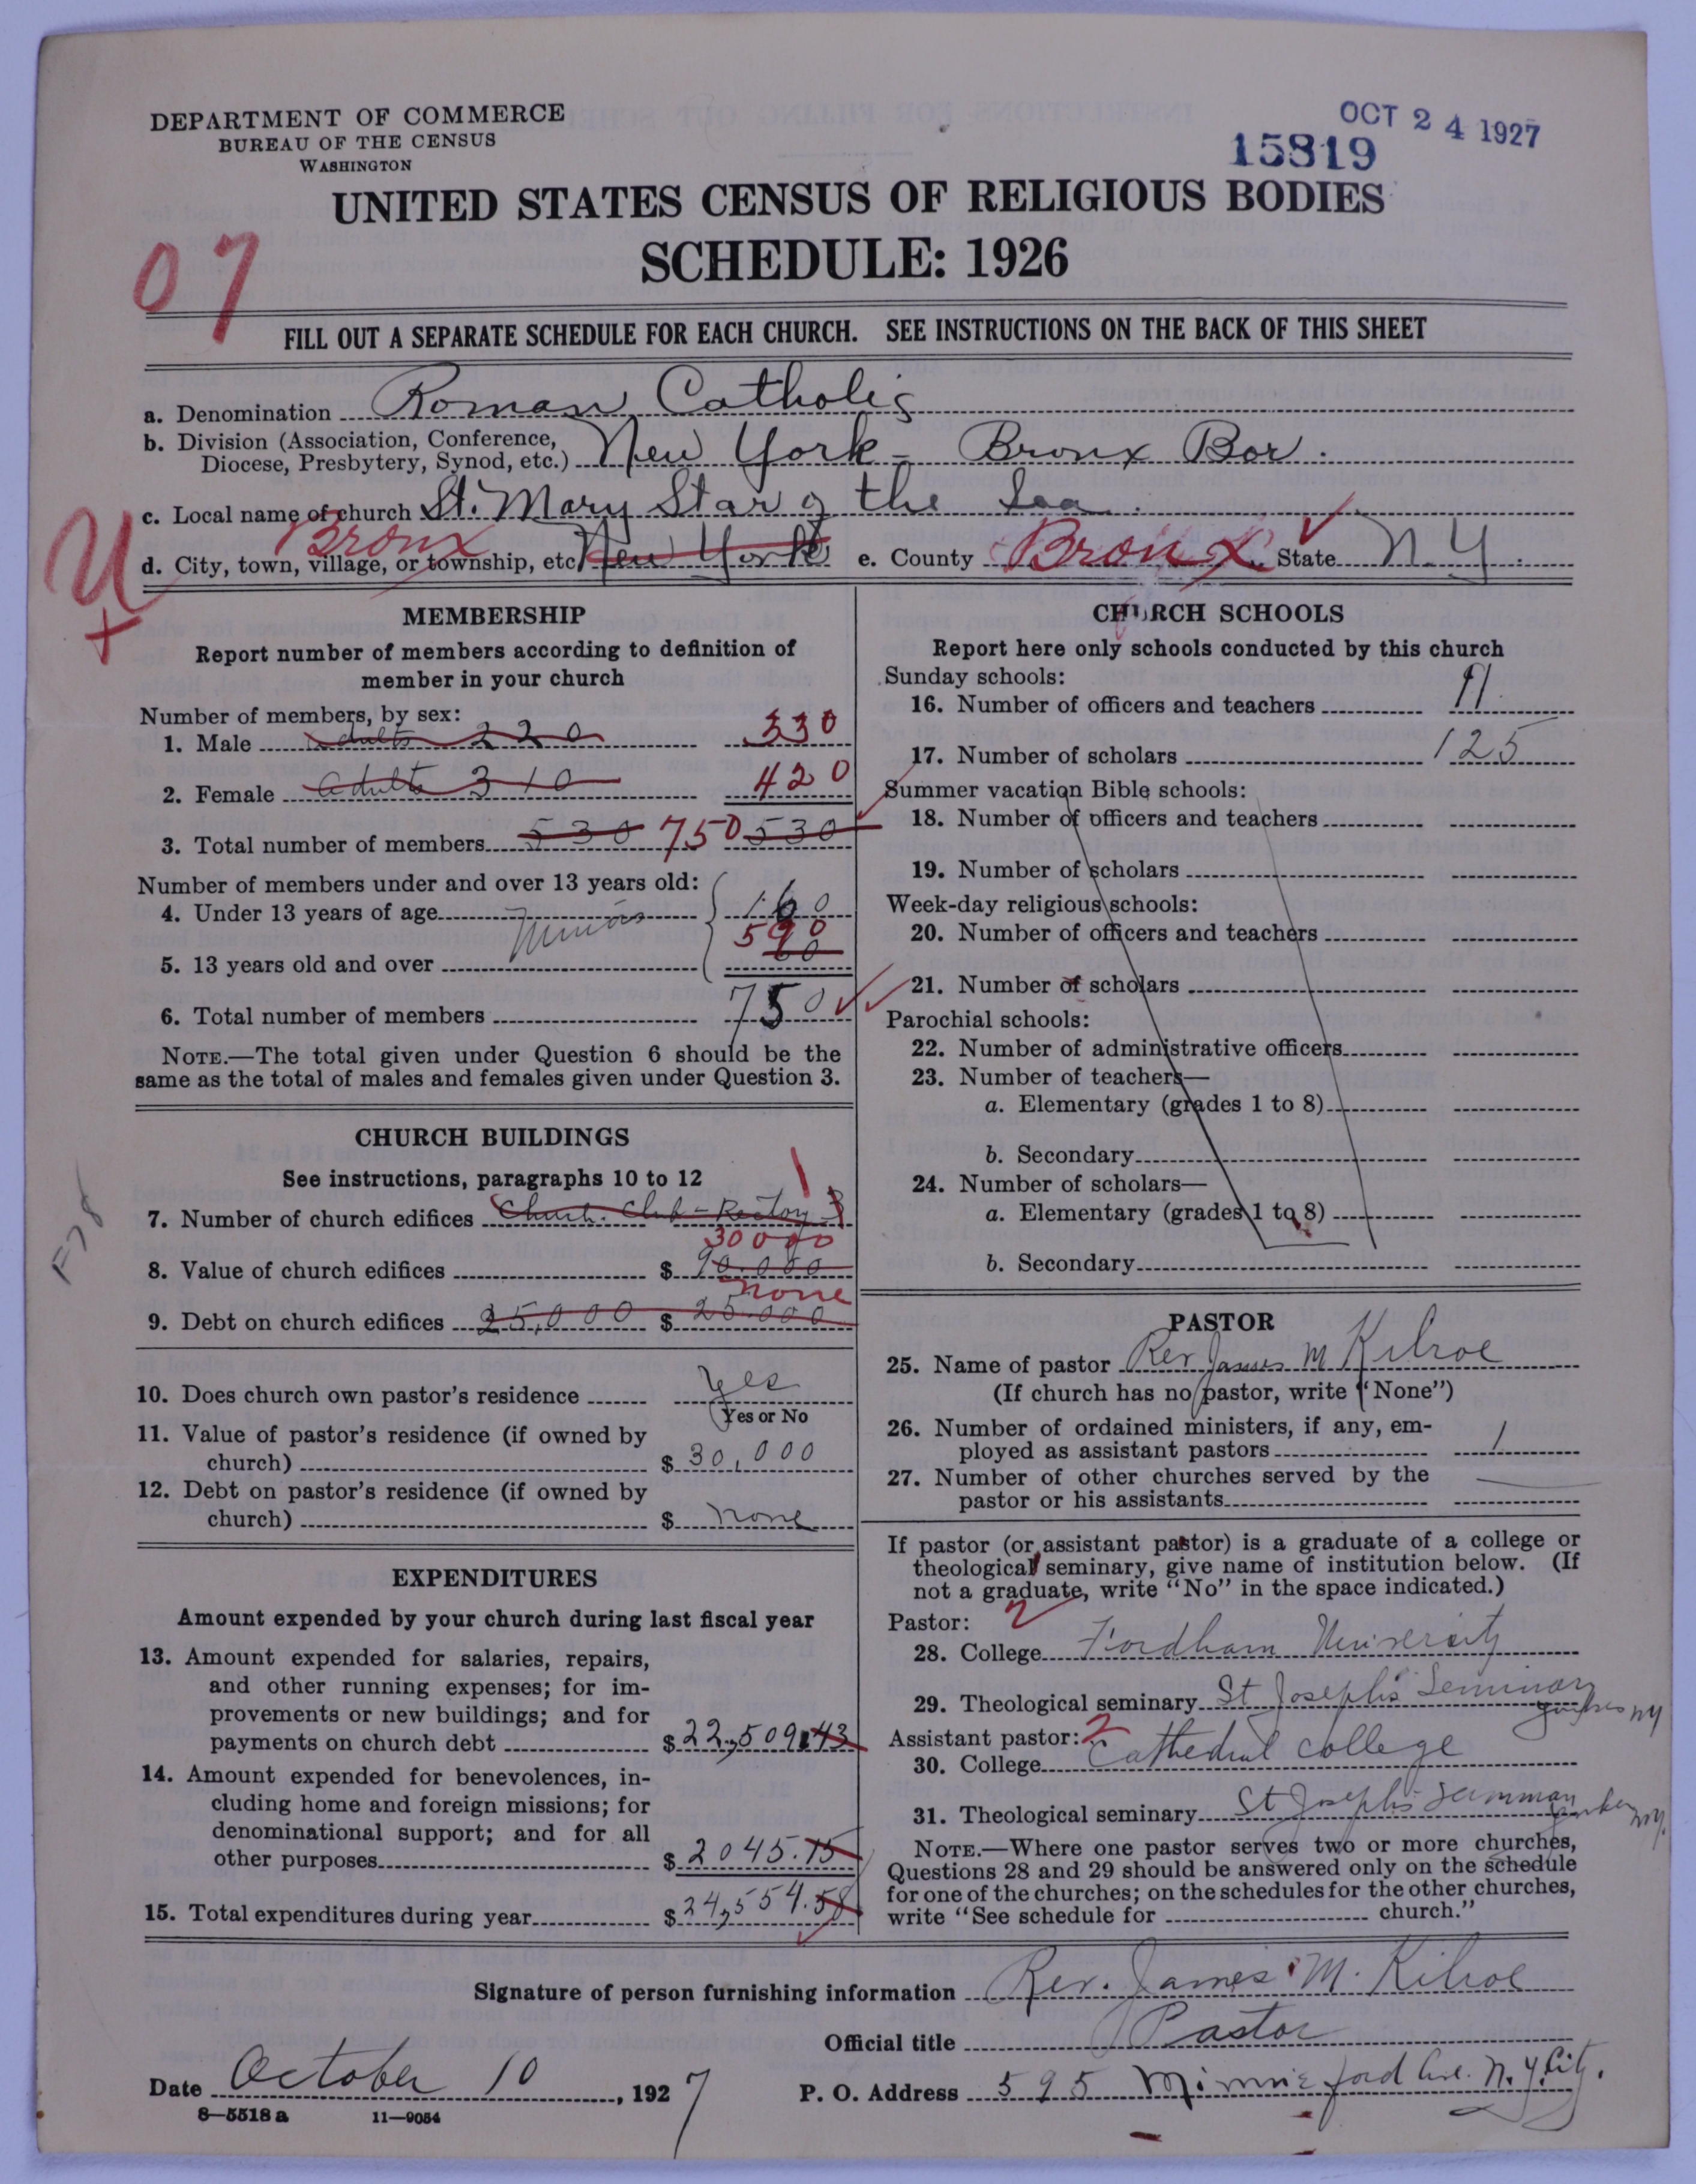 DEPARTMENT OF COMMERCE
BUREAU OF THE CENSUS
WASHINGTON
OCT 24 1927
15819
UNITED STATES CENSUS OF RELIGIOUS BODIES
SCHEDULE: 1926
07
FILL OUT A SEPARATE SCHEDULE FOR EACH CHURCH. SEE INSTRUCTIONS ON THE BACK OF THIS SHEET
a. Denomination Roman Catholic
b. Division (Association, Conference,
Diocese, Presbytery, Synod, etc.) New York - Bronx Bor.
c. Local name of church St. Mary Star of the Sea.
U
Bronx
d. City, town, village, or township, etc New York e. County Bronx State N.Y.
MEMBERSHIP
Report number of members according to definition of
member in your church
Number of members, by sex:
1. Male adults 220 330
2. Female adults 310 420
3. Total number of members 530 750 530
Number of members under and over 13 years old:
4. Under 13 years of age Minors 160
590
5. 13 years old and over 60
6. Total number of members 750
NOTE.—The total given under Question 6 should be the
same as the total of males and females given under Question 3.
CHURCH BUILDINGS
See instructions, paragraphs 10 to 12
1
7. Number of church edifices Church. Club - Rectory 3
30000
8. Value of church edifices $ 90.000
none
9. Debt on church edifices 25,000 $ 25.000
10. Does church own pastor's residence Yes
Yes or No
11. Value of pastor's residence (if owned by
church) $ 30,000
12. Debt on pastor's residence (if owned by
church) $ none
EXPENDITURES
Amount expended by your church during last fiscal year
13. Amount expended for salaries, repairs,
and other running expenses; for im-
provements or new buildings; and for
payments on church debt $ 22,509.43
14. Amount expended for benevolences, in-
cluding home and foreign missions; for
denominational support; and for all
other purposes $ 2045.15
15. Total expenditures during year $ 24,554.58
CHURCH SCHOOLS
Report here only schools conducted by this church
Sunday schools:
16. Number of officers and teachers 11
17. Number of scholars 125
Summer vacation Bible schools:
18. Number of officers and teachers
19. Number of scholars
Week-day religious schools:
20. Number of officers and teachers
21. Number of scholars
Parochial schools:
22. Number of administrative officers
23. Number of teachers—
a. Elementary (grades 1 to 8)
b. Secondary
24. Number of scholars—
a. Elementary (grades 1 to 8)
b. Secondary
PASTOR
25. Name of pastor Rev James M Kilroe
(If church has no pastor, write "None")
26. Number of ordained ministers, if any, em-
ployed as assistant pastors 1
27. Number of other churches served by the
pastor or his assistants
If pastor (or assistant pastor) is a graduate of a college or
theological seminary, give name of institution below. (If
not a graduate, write "No" in the space indicated.)
Pastor: 2
28. College Fordham University
29. Theological seminary St Joseph's Seminary
Yonkers NY
Assistant pastor: 2
30. College Cathedral College
31. Theological seminary St Joseph's Seminary
Yonkers NY.
NOTE.—Where one pastor serves two or more churches,
Questions 28 and 29 should be answered only on the schedule
for one of the churches; on the schedules for the other churches,
write "See schedule for church."
Signature of person furnishing information Rev. James M. Kilroe
Official title Pastor
Date October 10, 1927 P. O. Address 595 Minnieford Ave. N.Y. City.
8—5518 a 11—9054